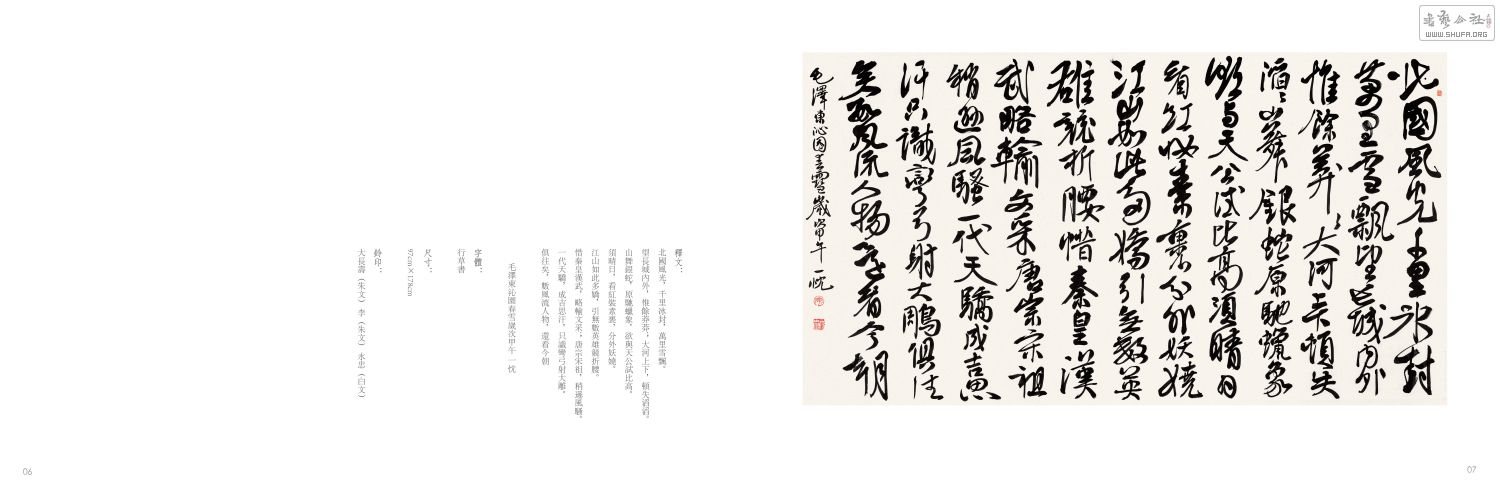 釋文：
北國風光，千里冰封，萬里雪飄。
望長城內外，惟餘莽莽，大河上下，頓失滔滔。
山舞銀蛇，原馳蠟象，欲與天公試比高。
須晴日，看紅裝素裹，分外妖嬈。
江山如此多嬌，引無數英雄競折腰。
惜秦皇漢武，略輸文采，唐宗宋祖，稍遜風騷。
一代天驕，成吉思汗，只識彎弓射大雕。
俱往矣，數風流人物，還看今朝
毛澤東沁園春雪歲次甲午 一忱
字體：
行草書
尺寸：
97cm×178cm
鈐印：
大長壽（朱文） 李（朱文） 永忠（白文）
06
北國風光千里冰封
萬里雪飄望長城內外
惟餘莽〻大河上下頓失
滔〻山舞銀蛇原馳蠟象
欲與天公試比高須晴日
看紅妝素裹分外妖嬈
江山如此多嬌引無數英
雄競折腰惜秦皇漢
武略輸文采唐宗宋祖
稍遜風騷一代天驕成吉思
汗只識彎弓射大鵰俱往
矣數風流人物還看今朝
毛澤東沁園春雪歲次甲午一忱
07
書藝公社
WWW.SHUFA.ORG